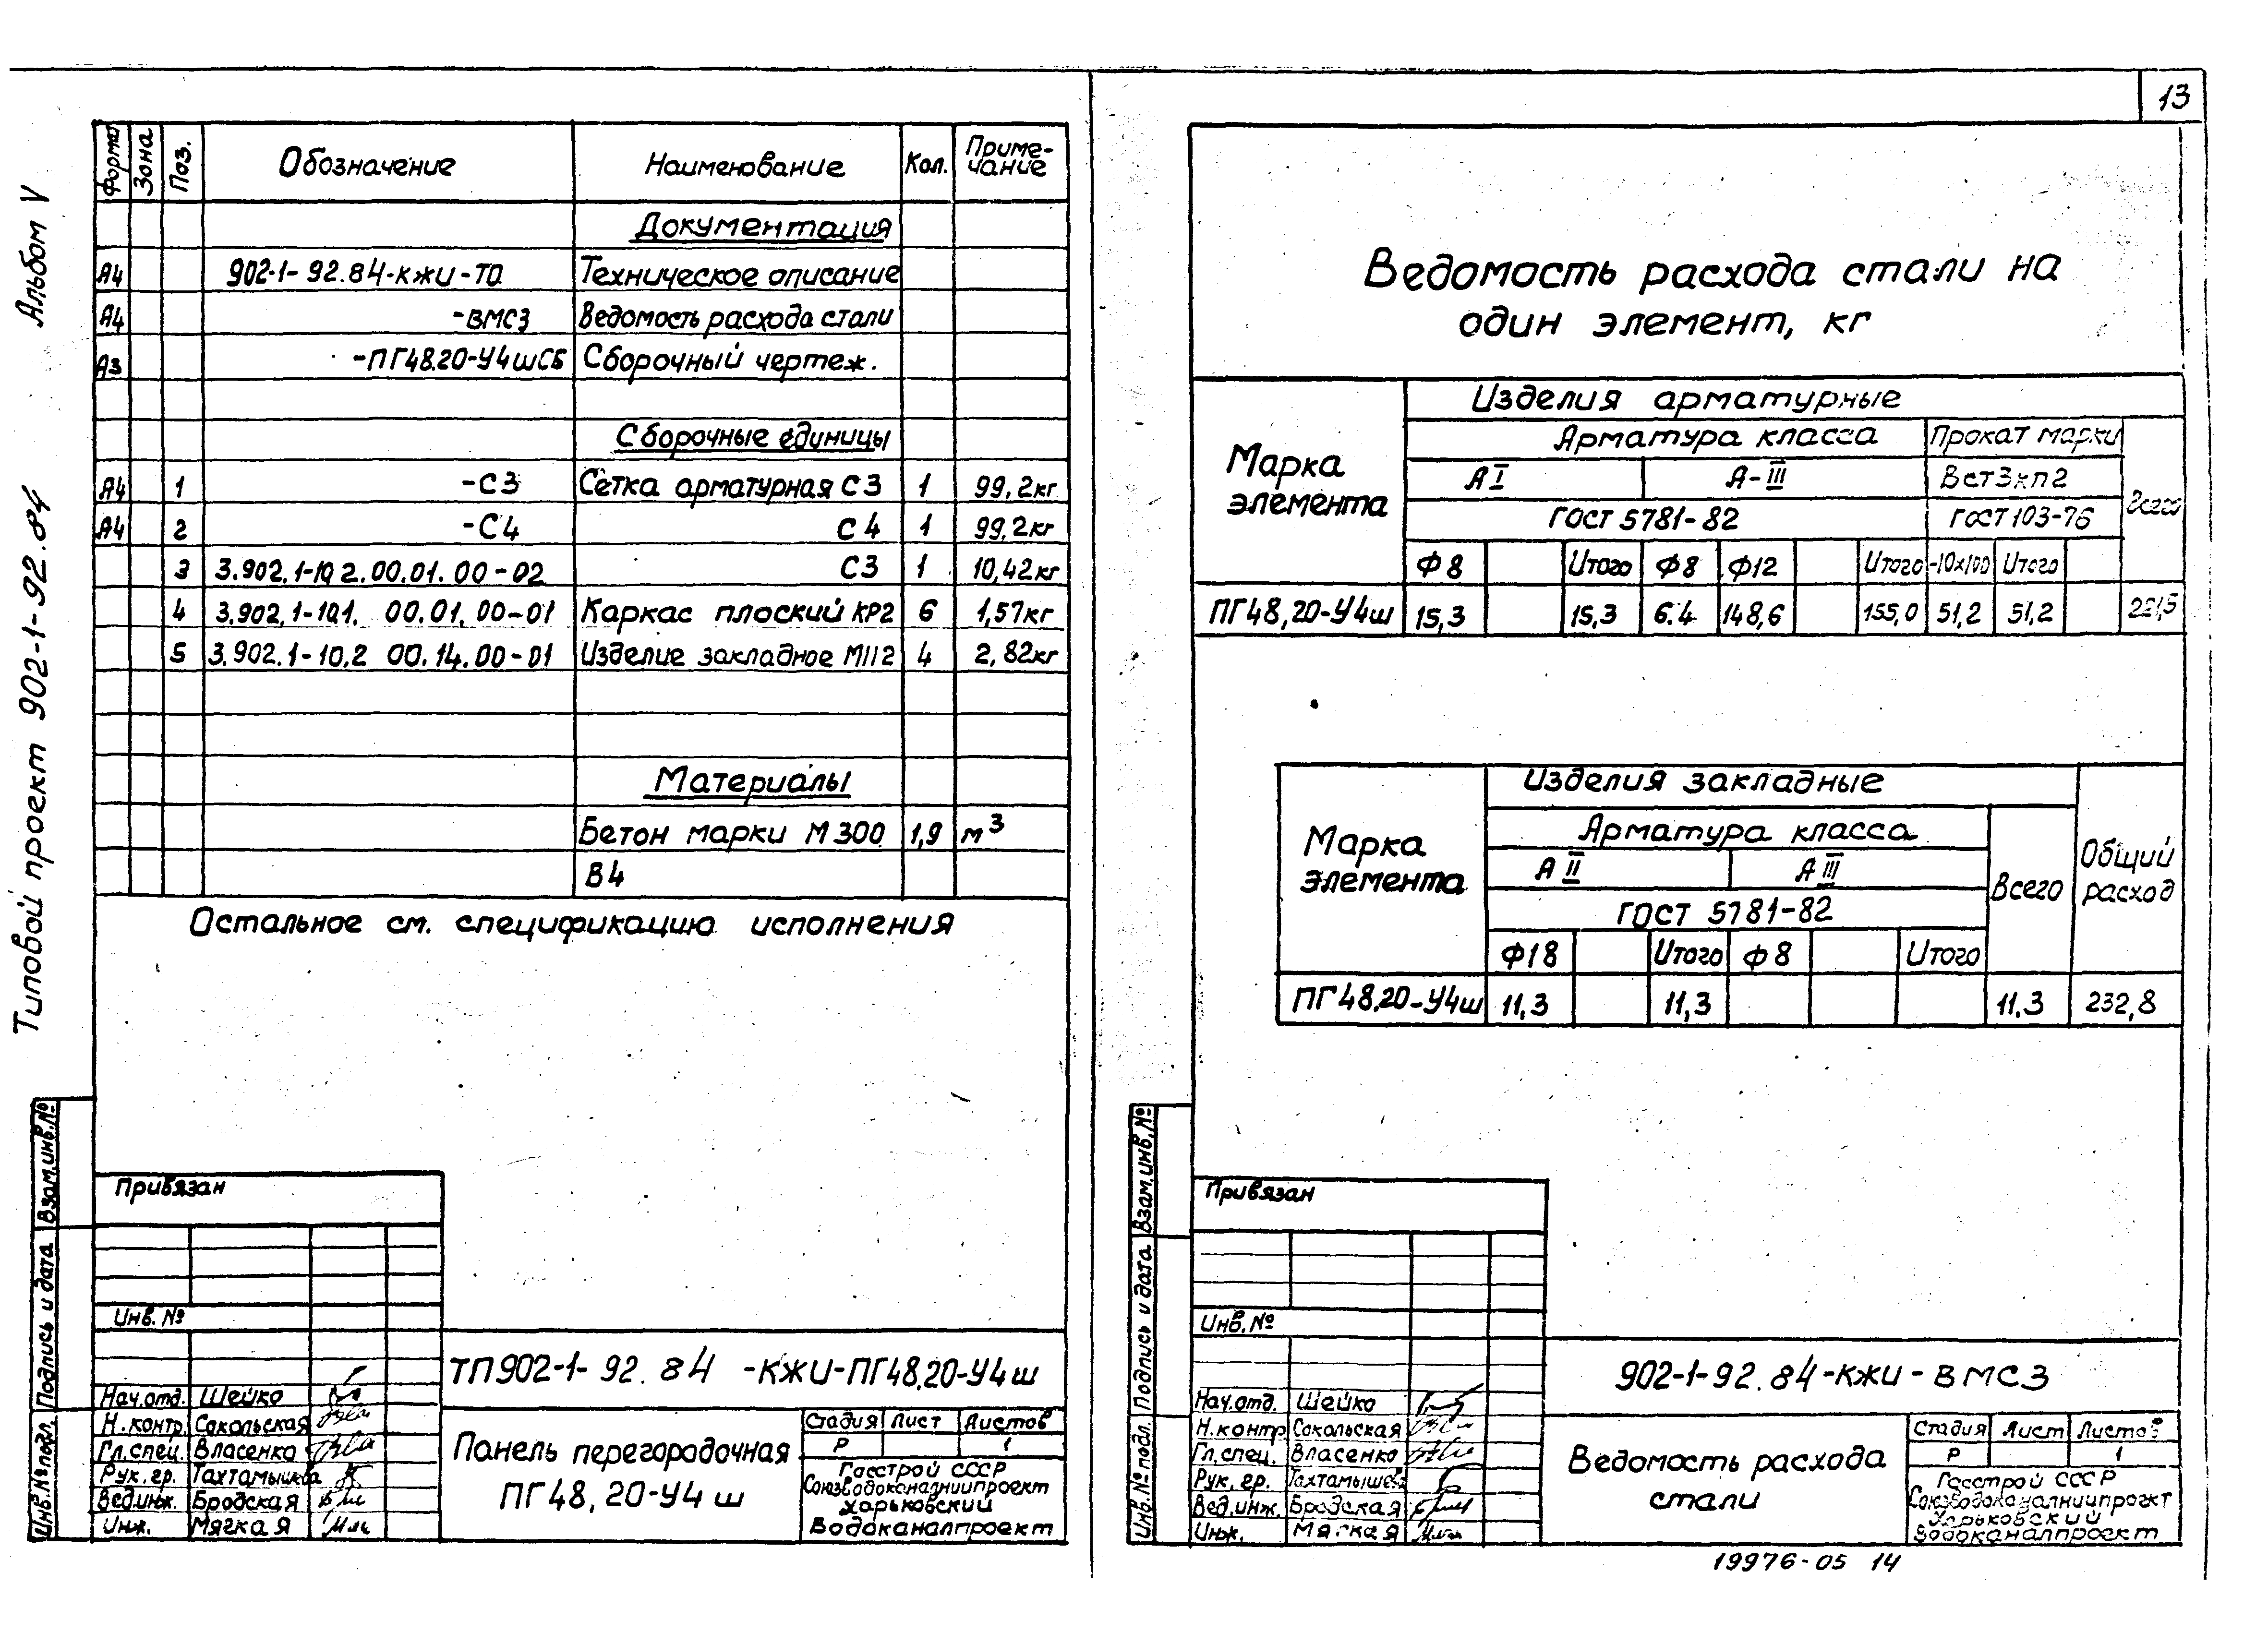 13
Типовой проект 902-1-92.84 Альбом V
Форма Зона Поз. Обозначение Наименование Кол. Приме-
чание
Документация
А4 902-1-92.84-КЖИ-ТО Техническое описание
А4 -ВМС3 Ведомость расхода стали
А3 -ПГ48.20-У4шСБ Сборочный чертеж.
Сборочные единицы
А4 1 -С3 Сетка арматурная С3 1 99,2кг
А4 2 -С4 С4 1 99,2кг
3 3.902.1-10.2.00.01.00-02 С3 1 10,42кг
4 3.902.1-10.1. 00.01.00-01 Каркас плоский КР2 6 1,57кг
5 3.902.1-10.2 00.14.00-01 Изделие закладное М112 4 2,82кг
Материалы
Бетон марки М300 1,9 м³
В4
Остальное см. спецификацию исполнения
Взам.инв.№
Подпись и дата
Инв.№ подл.
Привязан
Инв. №
Нач.отд. Шейко
Н.контр Сокольская
Гл.спец. Власенко
Рук.гр. Тахтамышева
Вед.инж. Бродская
Инж. Мягкая
ТП902-1-92.84 -КЖИ-ПГ48.20-У4ш
Панель перегородочная
ПГ48,20-У4ш
Стадия Лист Листов
Р 1
Госстрой СССР
Союзводоканалниипроект
Харьковский
Водоканалпроект
Ведомость расхода стали на
один элемент, кг
Марка
элемента
Изделия арматурные
Арматура класса Прокат марки
АI А-III ВСт3кп2 Всего
ГОСТ 5781-82 ГОСТ 103-76
Ф8 Итого Ф8 Ф12 Итого -10х100 Итого
ПГ48,20-У4ш 15,3 15,3 6.4 148,6 155,0 51,2 51,2 221,5
Марка
элемента
Изделия закладные
Арматура класса
АII АIII
ГОСТ 5781-82
Всего
Общий
расход
Ф18 Итого Ф8 Итого
ПГ48.20-У4ш 11,3 11,3 11.3 232,8
Взам.инв.№
Подпись и дата
Инв.№ подл.
Привязан
Инв.№
Нач.отд. Шейко
Н.контр Сокольская
Гл.спец. Власенко
Рук.гр. Тахтамышева
Вед.инж. Бродская
Инж. Мягкая
902-1-92.84-КЖИ-ВМС3
Ведомость расхода
стали
Стадия Лист Листов
Р 1
Госстрой СССР
Союзводоканалниипроект
Харьковский
Водоканалпроект
19976-05 14